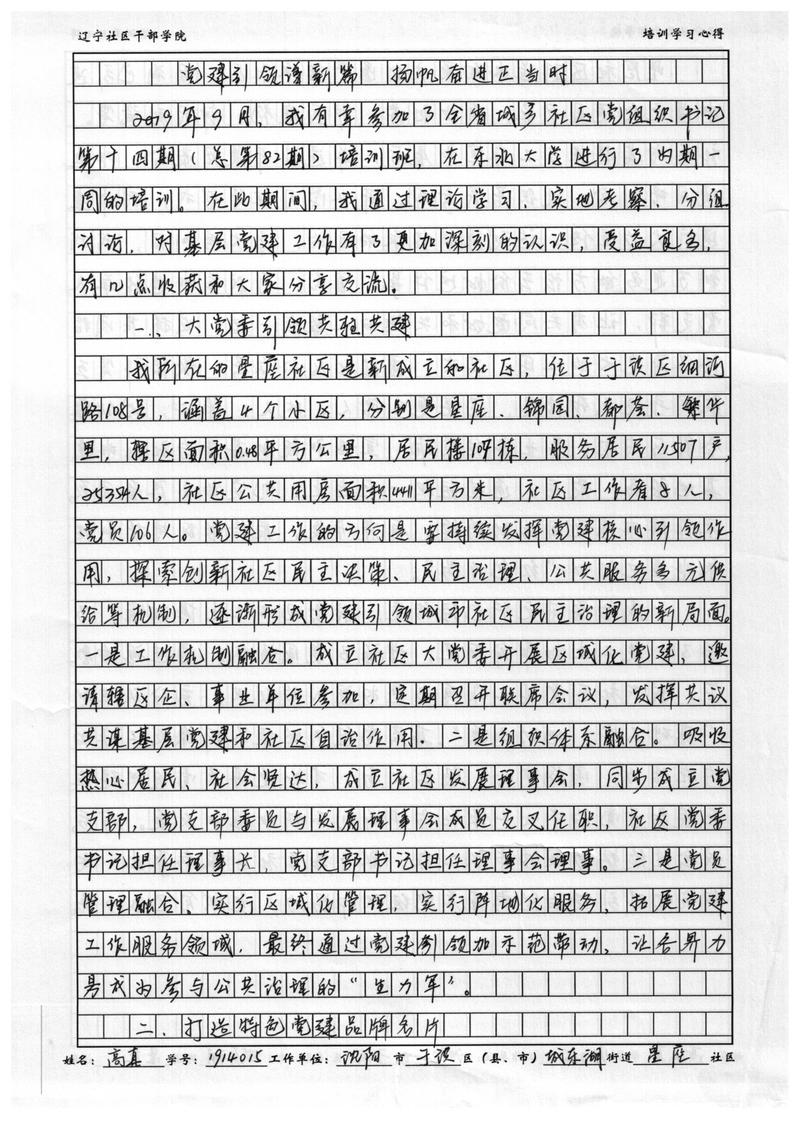 辽宁社区干部学院 培训学习心得
党建引领谱新篇 扬帆奋进正当时
2019年9月,我有幸参加了全省城乡社区党组织书记
第十四期(总第82期)培训班,在东北大学进行了为期一
周的培训。在此期间,我通过理论学习、实地考察、分组
讨论,对基层党建工作有了更加深刻的认识,受益良多,
有几点收获和大家分享交流。
一、大党委引领共驻共建
我所在的星座社区是新成立的社区,位于于洪区细河
路108号,涵盖4个小区,分别是星座、锦园、都荟、繁华
里,辖区面积0.48平方公里,居民楼109栋,服务居民11507户,
25354人,社区公共用房面积4411平方米,社区工作者8人,
党员106人。党建工作的方向是要持续发挥党建核心引领作
用,探索创新社区民主决策、民主治理、公共服务多元供
给等机制,逐渐形成党建引领城市社区民主治理的新局面。
一是工作机制融合。成立社区大党委开展区域化党建,邀
请辖区企、事业单位参加,定期召开联席会议,发挥共议
共谋基层党建和社区自治作用。二是组织体系融合。吸收
热心居民、社会贤达,成立社区发展理事会,同步成立党
支部,党支部委员与发展理事会成员交叉任职,社区党委
书记担任理事长,党支部书记担任理事会理事。三是党员
管理融合、实行区域化管理、实行阵地化服务,拓展党建
工作服务领域,最终通过党建引领加示范带动,让各界力
易成为参与公共治理的“生力军”。
二、打造特色党建品牌名片
姓名:高真 学号:1914015 工作单位:沈阳 市 于洪 区(县、市)城东湖街道 星座 社区